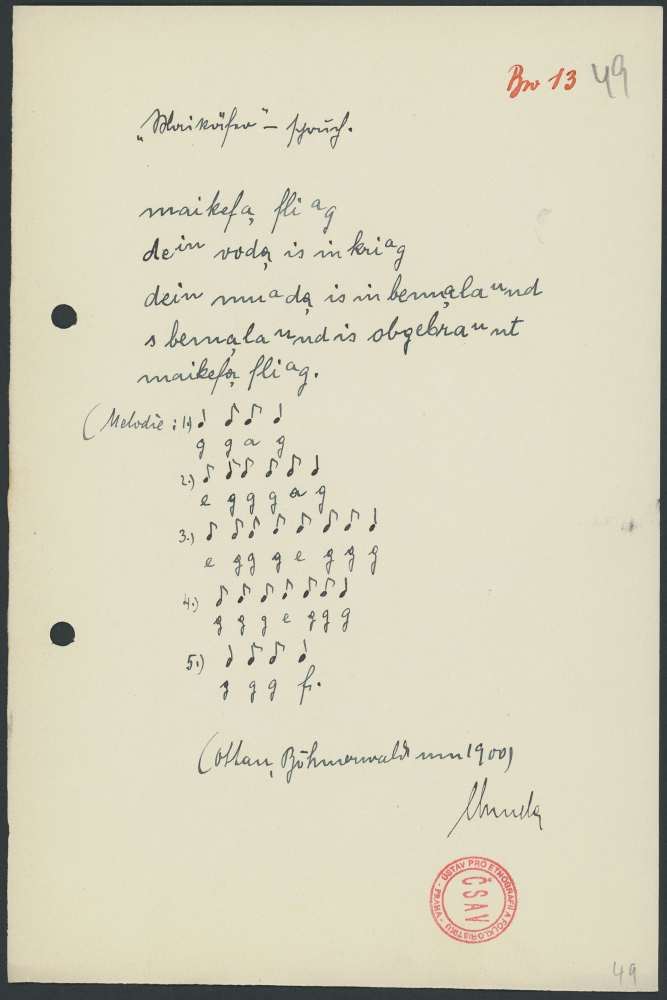 Bw 13 49
„Maikäfer" – spruch.
maikefa̤ fliag
dein voda̤ is in kriag
dein muada̤ is in bema̤laund
s bema̤laund is obgebraunt
maikefa̤ fliag.
(Melodie: 1.)
g g a g
2.)
e g g g a g
3.)
e g g g e g g g
4.)
g g g e g g g
5.)
g g g f.
(Ottau, Böhmerwald um 1900)
ÚSTAV PRO ETNOGRAFII A FOLKLORISTIKU - PRAHA -
ČSAV
49